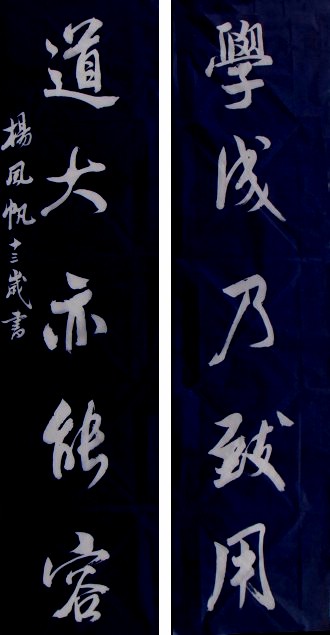 學成乃致用
道大亦能容
楊風帆十三歲書